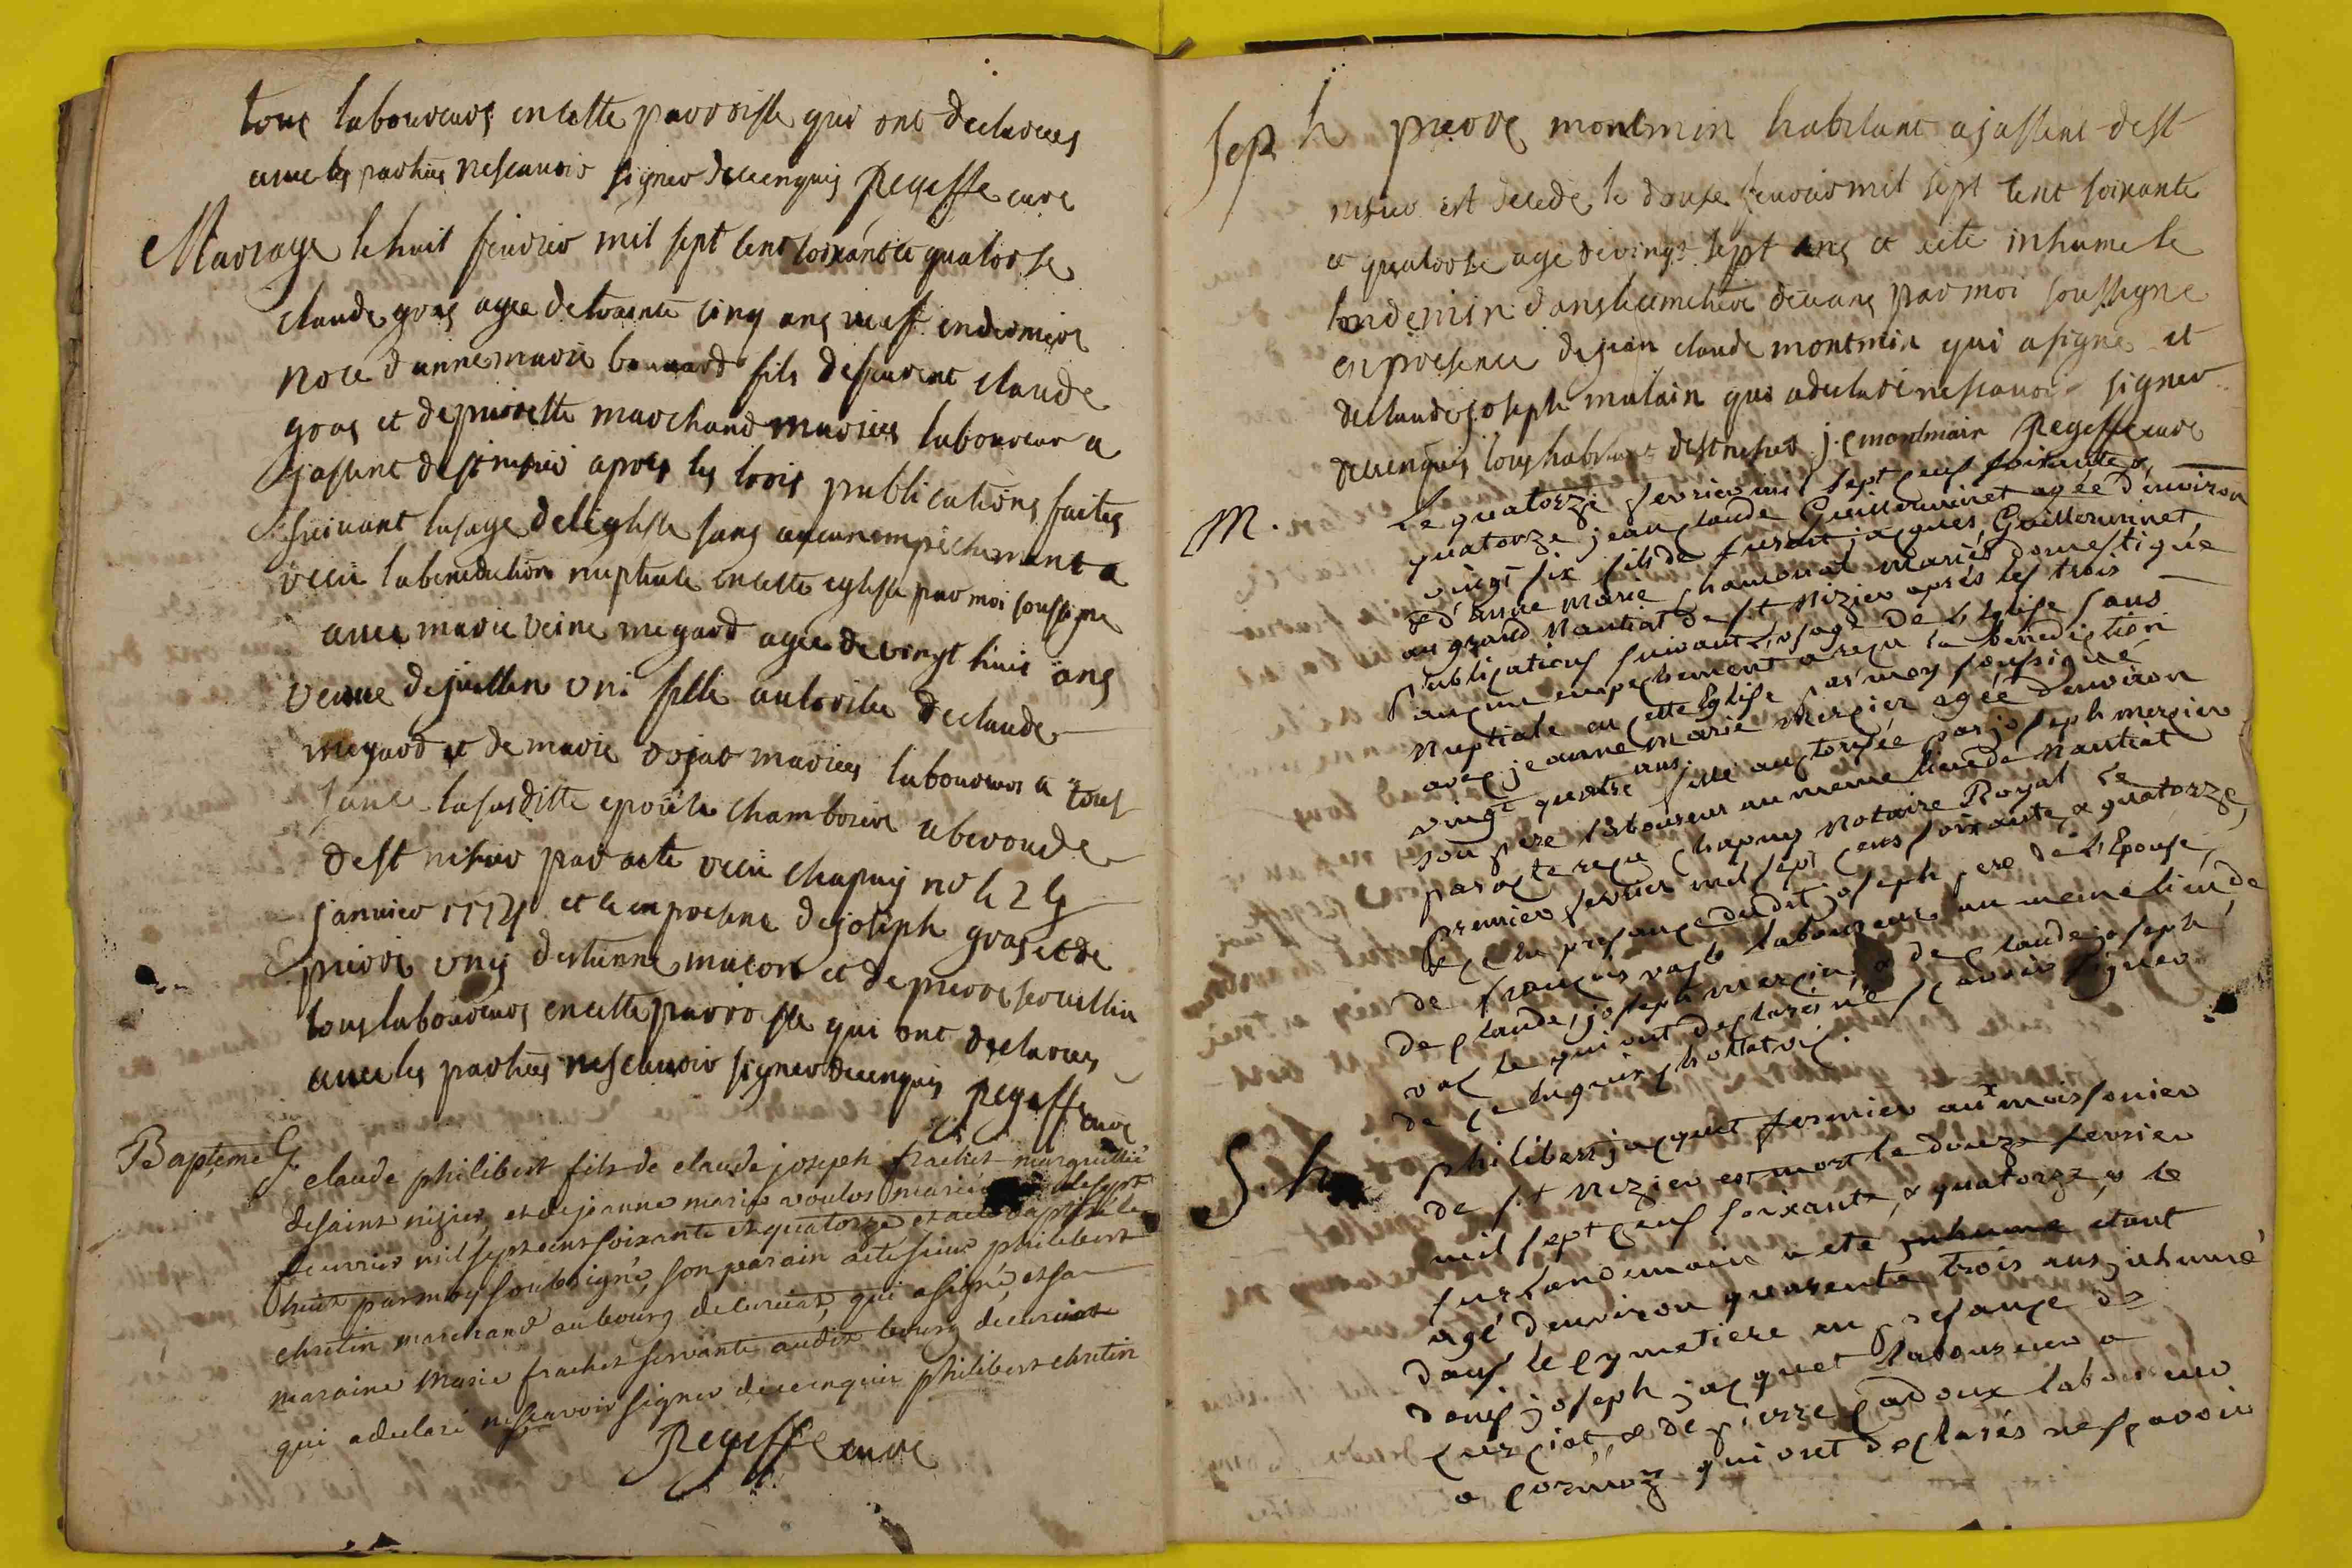 tous laboureurs en cette parroisse qui ont declarees
avec les parties nescauoir signer de ce enquis Regeffe cure
Mariage le huit feuvrier mil sept cent soixante et quatorse
claude gras agee de trente cinq ans veuf en derniere
noce d anne marie fils de feuvent claude
gras et de pierrette marchand mariees laboureur a
jassent de st nisier apres les trois publications faites
suivant lusage de leglise sans aucun empechement a
recu la benediction nuptiale en cette eglise par moi soussigne
avec marie reine megard agee de vingt huit ans
veuve de jullien uni fille autorisee de claude
megard et de marie mariees laboureurs a tous
la susditte chamboire
de st nisier par acte recu chapuy nre le 24
janvier 1774 et ce en presence de joseph gras et de
pierre uny destienne macon et de pierre
tous laboureurs en cette parroisse qui ont declarees
avec les parties nescauoir signer de ce enquis Regeffe
cure
Bapteme G. claude philibert fils de claude joseph frachet marguillié
de saint nizier, et de jeanne marie voulos mariés le sept
feuvrier mil sept cent soixante et quatorze et a eté baptisé le
huit par moy soubsigné, son parain a eté sieur philibert
chretin marchand au bourg de curciat, qui a signé, et sa
maraine marie frachet servante audit bourg de curciat
qui a declaré nescavoir signer de ce enquise philibert chretin
Regeffe cure
Sep h pierre montmin habitant a jassent de st
nisier est decede le douse feuvrier mil sept cent soixante
et quatorse age de vingt sept ans et a ete inhume le
lendemin dans le cimetiere devans par moi soussigne
en presence de jean claude montmin qui a signé et
de claude joseph mulain qui a declaré nescauoir signer
de ce enquis tous habitants de st nisier j. c montmain Regeffe cure
M. Le quatorze fevrier mil sept cens soixante &
quatorze jean claude Guillouminet agée d'environ
vingt six fils de furent jacques Guilloeminnet,
& d'anne marie chamonat mariés domestique
au grand Nantiat de st Nizier aprés les trois
publications suivant l'usage de L'Eglise sans
aucun empechement a reçu la benediction
Nuptiale en cette Eglise par moy soussigné
avec jeanne marie mercier agée d'environ
vingt quatre ans. fille auctorisée par joseph mercier
son pere laboureur au meme lieu de Nantiat
par acte reçu chapuy Notaire Royal Le
premier fevrier mil sept cens soixante & quatorze
& ce en presence dudit joseph pere de L'Epouse,
de françois vacle laboureur au meme lieu, de
de claude, joseph mercier, & de claude joseph
vacle qui ont declarés ne sçavoir signer
de ce enquis
S. h philibert jacquet fermier aux moissonier
de s.t Nizier est mort le douze fevrier
mil sept cens soixante & quatorze & le
surlandemain a eté inhumé etant
agé d'environ quarente trois ans inhumé
dans le cymetiere en presance de
denis joseph jacquet laboureur a
curciat, & de pierre cadoux laboureur
a cormoz qui ont declarés ne sçavoir